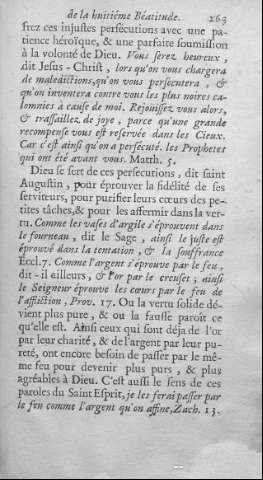 de la huitiéme Béatitude. 263
frez ces injustes persécutions avec une pa-
tience héroïque, & une parfaite soumission
à la volonté de Dieu. Vous serez heureux,
dit Jesus-Christ, lors qu'on vous chargera
de maledictions, qu'on vous persecutera, &
qu'on inventera contre vous les plus noires ca-
lomnies à cause de moi. Rejouissez vous alors,
& trassaillez de joye, parce qu'une grande
recompense vous est reservée dans les Cieux.
Car c'est ainsi qu'on a persecuté les Prophetes
qui ont été avant vous. Matth. 5.
Dieu se sert de ces persecutions, dit saint
Augustin, pour éprouver la fidélité de ses
serviteurs, pour purifier leurs cœurs des pe-
tites tâches, & pour les affermir dans la ver-
tu. Comme les vases d'argile s'éprouvent dans
le fourneau, dit le Sage, ainsi le juste est
éprouvé dans la tentation, & la souffrance
Eccl. 7. Comme l'argent s'éprouve par le feu,
dit-il ailleurs, & l'or par le creuset; ainsi
le Seigneur éprouve les cœurs par le feu de
l'affliction, Prov. 17. Ou la vertu solide dé-
vient plus pure, & ou la fausse paroît ce
qu'elle est. Ainsi ceux qui sont déja de l'or
par leur charité, & de l'argent par leur pu-
reté, ont encore besoin de passer par le mê-
me feu pour devenir plus purs, & plus
agréables à Dieu. C'est aussi le sens de ces
paroles du Saint Esprit, je les ferai passer par
le feu comme l'argent qu'on affine, Zach. 13.